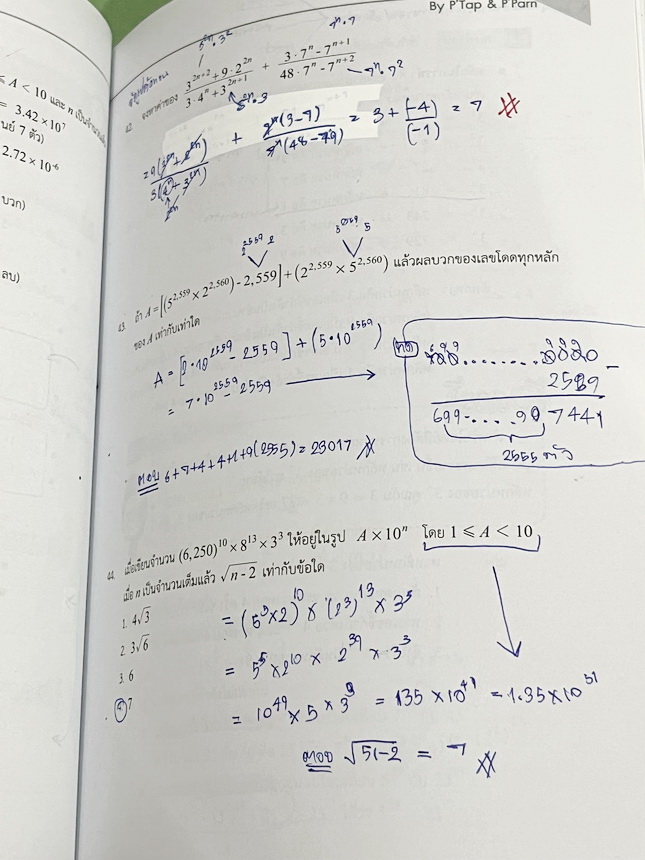 By P'Tap & P'Parn
≤ A < 10 และ n เป็นจำนวนเต็ม
= 3.42 × 10⁷
2.72 × 10⁻⁶
บวก)
ลบ)
5²ⁿ·3²
7ⁿ·7
42. จงหาค่าของ (3²ⁿ⁺² + 9·2²ⁿ)/(3·4ⁿ + 3²ⁿ⁺¹) + (3·7ⁿ − 7ⁿ⁺¹)/(48·7ⁿ − 7ⁿ⁺²)
7ⁿ·7²
3²ⁿ·3
= 9(3²ⁿ + 2²ⁿ)/3(4ⁿ + 3²ⁿ) + 7ⁿ(3−7)/7ⁿ(48−49) = 3 + (−4)/(−1) = 7
2ⁿ
2²⁵⁵⁹ 2
5²⁵⁵⁹ 5
43. ถ้า A = [(5²,⁵⁵⁹ × 2²,⁵⁶⁰) − 2,559] + (2²,⁵⁵⁹ × 5²,⁵⁶⁰) แล้วผลบวกของเลขโดดทุกหลัก
ของ A เท่ากับเท่าใด
A = [2·10²⁵⁵⁹ − 2559] + (5·10²⁵⁵⁹)
= 7·10²⁵⁵⁹ − 2559
ทด
2559 −
699.....99 7441
2555 ตัว
ตอบ 6+7+4+4+1+9(2555) = 23017
44. เมื่อเขียนจำนวน (6,250)¹⁰ × 8¹³ × 3³ ให้อยู่ในรูป A × 10ⁿ โดย 1 ≤ A < 10
เมื่อ n เป็นจำนวนเต็มแล้ว √(n−2) เท่ากับข้อใด
1. 4√3
2. 3√6
3. 6
4. 7
= (5⁵×2)¹⁰ × (2³)¹³ × 3³
= 5⁵ × 2¹⁰ × 2³⁹ × 3³
= 10⁴⁹ × 5 × 3³ = 135 × 10⁴⁹ = 1.35×10⁵¹
ตอบ √(51−2) = 7